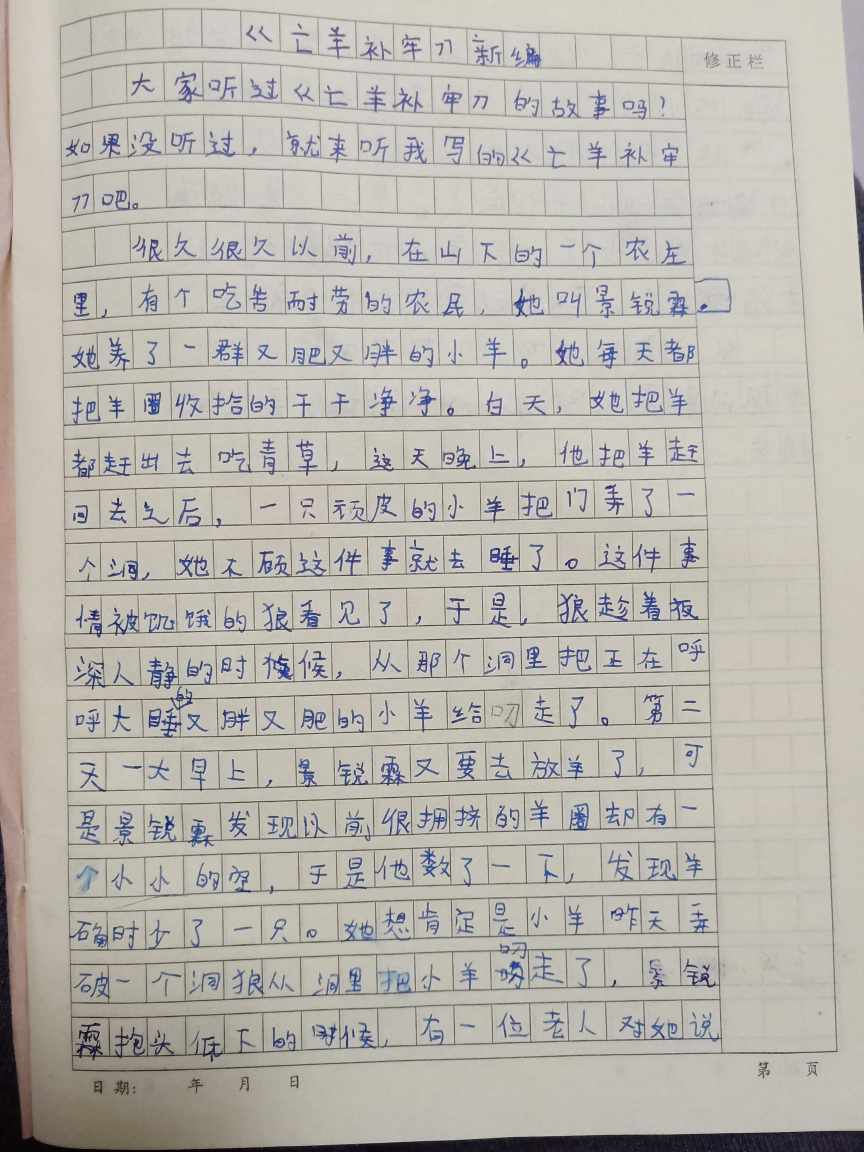 《亡羊补牢》新编
修正栏
大家听过《亡羊补牢》的故事吗？
如果没听过，就来听我写的《亡羊补牢
》吧。
很久很久以前，在山下的一个农左
里，有个吃苦耐劳的农民，她叫景锐霖。
她养了一群又肥又胖的小羊。她每天都
把羊圈收拾的干干净净。白天，她把羊
都赶出去吃青草，这天晚上，他把羊赶
回去之后，一只顽皮的小羊把门弄了一
个洞，她不顾这件事就去睡了。这件事
情被饥饿的狼看见了，于是，狼趁着夜
深人静的时候，从那个洞里把正在呼
呼大睡的又胖又肥的小羊给叨走了。第二
天一大早上，景锐霖又要去放羊了，可
是景锐霖发现以前很拥挤的羊圈却有一
个小小的空，于是他数了一下，发现羊
确时少了一只。她想肯定是小羊昨天弄
破一个洞狼从洞里把小羊叨走了，景锐
霖抱头低下的时候，有一位老人对她说
日期： 年 月 日
第 页